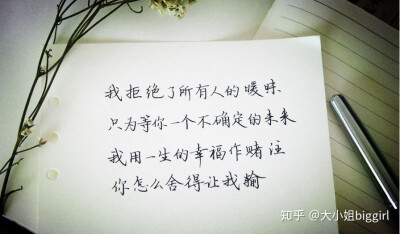 我拒绝了所有人的暖昧
只为等你一个不确定的未来
我用一生的幸福作赌注
你怎么舍得让我输
知乎 @大小姐biggirl